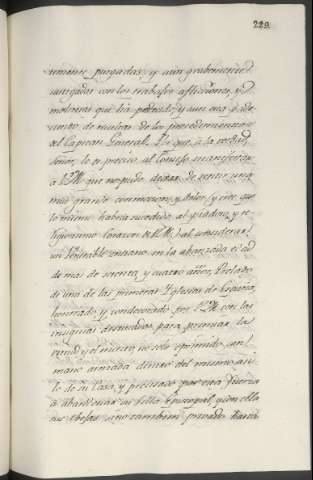 229
temente purgadas, y aun gravemente
castigadas con los trabajos, aflicciones, y
molestias que ha padecido, y aun esta pade-
ciendo de resultas de los procedimientos
del Capitan General. Por que, a la verdad
señor, le es preciso al Consejo manifestar
a V.M. que no puede dejar de sentir una
muy grande conmocion, y dolor, y cree que
lo mismo habrá sucedido al piadoso, y re-
ligiosisimo Corazon de V.M. al considerar
un Venerable anciano en la abanzada edad
de mas de setenta, y quatro años, Prelado
de una de las primeras Iglesias de España,
honrado, y condecorado por V.M. con las
insignias destinadas para premiar la
virtud y el merito, no solo oprimido, con
mano armada dentro del mismo asi-
lo de su Casa, y precisado por esta fuerza
a abandonar su silla Episcopal, y con ella
sus obejas, sino tambien privado hasta